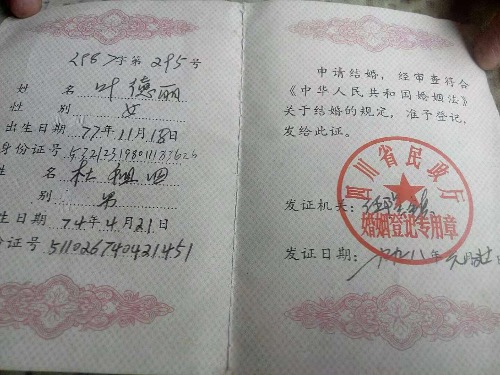 2987字第295号
姓 名 叶德丽
性 别 女
出生日期 77年11月18日
身份证号
姓 名 杜祖四
性 别 男
生日期 74年4月21日
证号 511026740421451
申请结婚，经审查符合
《中华人民共和国婚姻法》
关于结婚的规定，准予登记，
发给此证。
四川省民政厅
婚姻登记专用章
发证机关：
发证日期：